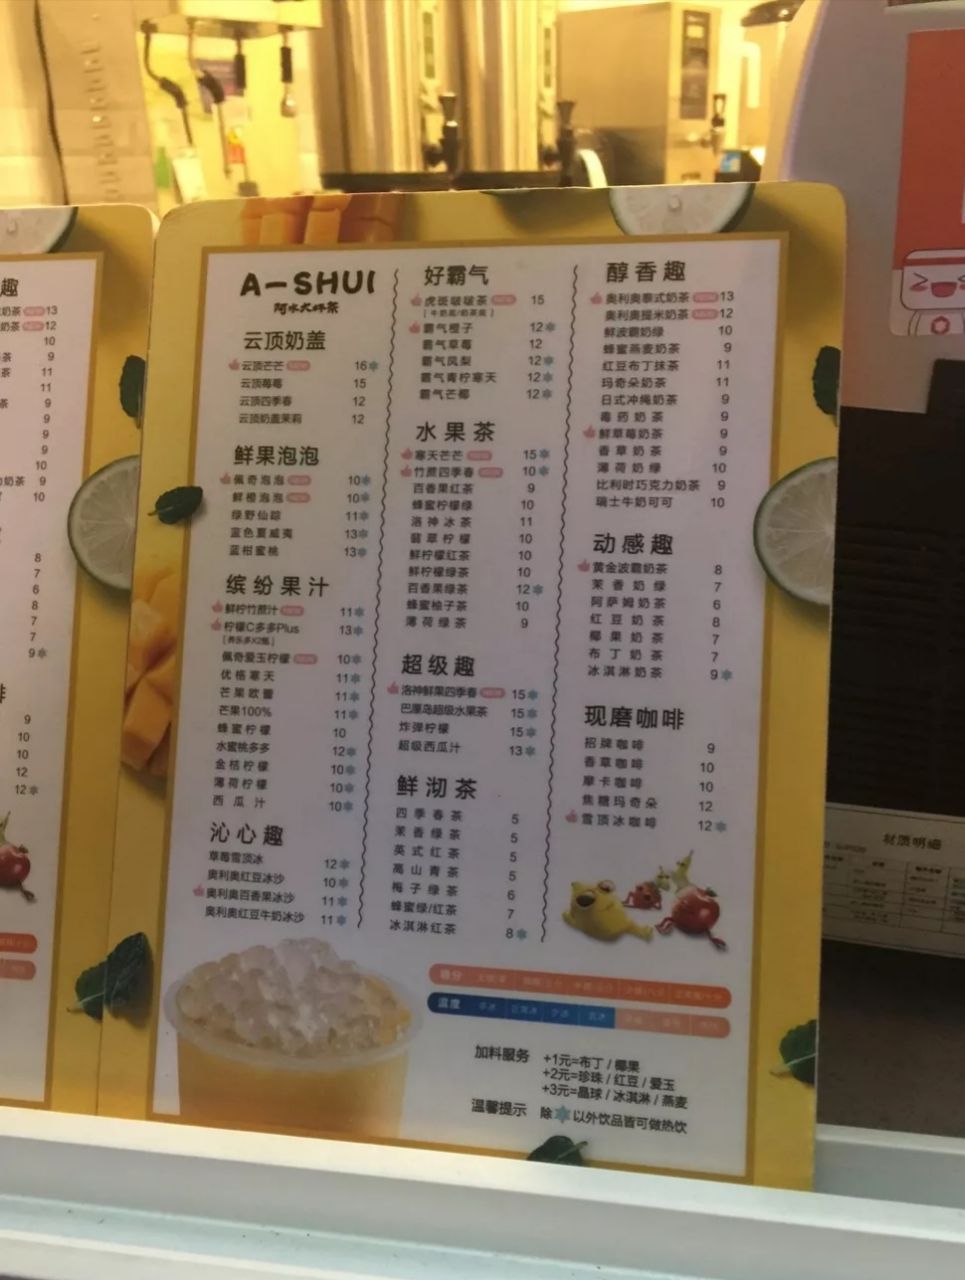 A-SHUI
阿水大杯茶
云顶奶盖
云顶芒芒 NEW 16
云顶莓莓 15
云顶四季春 12
云顶奶盖茉莉 12
鲜果泡泡
佩奇泡泡 NEW 10
鲜橙泡泡 NEW 10
绿野仙踪 11
蓝色夏威夷 13
蓝柑蜜桃 13
缤纷果汁
鲜柠竹蔗汁 NEW 11
柠檬C多多Plus 13
[养乐多X2瓶]
佩奇爱玉柠檬 NEW 10
优格寒天 11
芒果欧蕾 11
芒果100% 11
蜂蜜柠檬 10
水蜜桃多多 12
金桔柠檬 10
薄荷柠檬 10
西瓜汁 10
沁心趣
草莓雪顶冰 12
奥利奥红豆冰沙 10
奥利奥百香果冰沙 11
奥利奥红豆牛奶冰沙 11
好霸气
虎斑啵啵茶 NEW 15
[牛奶底/奶茶底]
霸气橙子 12
霸气草莓 12
霸气凤梨 12
霸气青柠寒天 12
霸气芒椰 12
水果茶
寒天芒芒 NEW 15
竹蔗四季春 NEW 10
百香果红茶 9
蜂蜜柠檬绿 10
洛神冰茶 11
翡翠柠檬 10
鲜柠檬红茶 10
鲜柠檬绿茶 10
百香果绿茶 12
蜂蜜柚子茶 10
薄荷绿茶 9
超级趣
洛神鲜果四季春 NEW 15
巴厘岛超级水果茶 15
炸弹柠檬 15
超级西瓜汁 13
鲜沏茶
四季春茶 5
茉香绿茶 5
英式红茶 5
高山青茶 5
梅子绿茶 6
蜂蜜绿/红茶 7
冰淇淋红茶 8
醇香趣
奥利奥泰式奶茶 NEW 13
奥利奥提米奶茶 NEW 12
鲜波霸奶绿 10
蜂蜜燕麦奶茶 9
红豆布丁抹茶 11
玛奇朵奶茶 11
日式冲绳奶茶 9
毒药奶茶 9
鲜草莓奶茶 9
香草奶茶 9
薄荷奶绿 10
比利时巧克力奶茶 9
瑞士牛奶可可 10
动感趣
黄金波霸奶茶 8
茉香奶绿 7
阿萨姆奶茶 6
红豆奶茶 8
椰果奶茶 7
布丁奶茶 7
冰淇淋奶茶 9
现磨咖啡
招牌咖啡 9
香草咖啡 10
摩卡咖啡 10
焦糖玛奇朵 12
雪顶冰咖啡 12
糖分
温度
加料服务 +1元=布丁/椰果
+2元=珍珠/红豆/爱玉
+3元=晶球/冰淇淋/燕麦
温馨提示 除 以外饮品皆可做热饮
材质明细